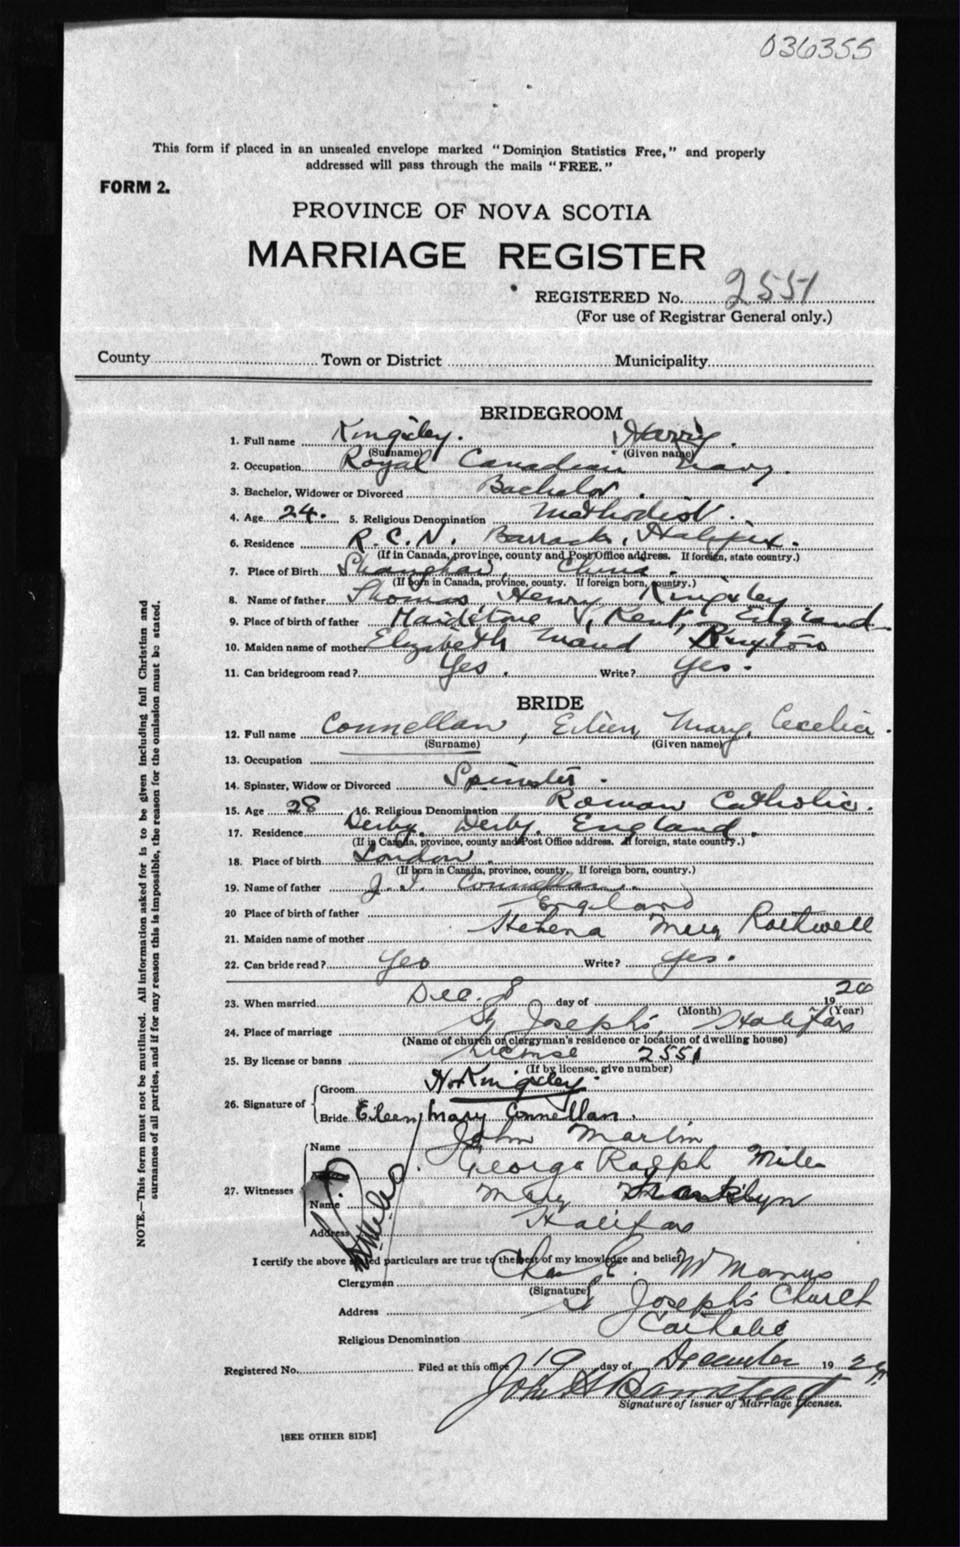 036355
This form if placed in an unsealed envelope marked "Dominion Statistics Free," and properly
addressed will pass through the mails "FREE."
FORM 2.
PROVINCE OF NOVA SCOTIA
MARRIAGE REGISTER
REGISTERED No. 2551
(For use of Registrar General only.)
County Town or District Municipality
BRIDEGROOM
1. Full name Kingsley. Harry.
(Surname) (Given name)
2. Occupation Royal Canadian Navy.
3. Bachelor, Widower or Divorced Bachelor.
4. Age 24. 5. Religious Denomination Methodist.
6. Residence R.C.N. Barracks, Halifax.
(If in Canada, province, county and Post Office address. If foreign, state country.)
7. Place of Birth Shanghai, China.
(If born in Canada, province, county. If foreign born, country.)
8. Name of father Thomas Henry Kingsley
9. Place of birth of father Maidstone, Kent, England
10. Maiden name of mother Elizabeth Maud Buxton
11. Can bridegroom read? Yes. Write? Yes.
BRIDE
12. Full name Connellan, Eileen, Mary, Cecelia.
(Surname) (Given name)
13. Occupation
14. Spinster, Widow or Divorced Spinster.
15. Age 28 16. Religious Denomination Roman Catholic.
17. Residence Derby, Derby, England.
(If in Canada, province, county and Post Office address. If foreign, state country.)
18. Place of birth London.
(If born in Canada, province, county. If foreign born, country.)
19. Name of father Connellan.
20 Place of birth of father England
21. Maiden name of mother Helena Mary Rothwell
22. Can bride read? Yes Write? Yes.
23. When married Dec. 8 day of 1920
(Month) (Year)
24. Place of marriage St Joseph's, Halifax
(Name of church or clergyman's residence or location of dwelling house)
25. By license or banns License 2551
(If by license, give number)
26. Signature of Groom H Kingsley.
Bride Eileen Mary Connellan.
27. Witnesses Name John Martin
George Ralph Miles
Name Mary Franklyn
Address Halifax
I certify the above stated particulars are true to the best of my knowledge and belief,
Clergyman Chas E. McManus
(Signature)
Address St Joseph's Church
Religious Denomination Catholic
Registered No. Filed at this office 19 day of December 19
John
Signature of Issuer of Marriage Licenses.
[SEE OTHER SIDE]
NOTE.—This form must not be mutilated. All information asked for is to be given including full Christian and
surnames of all parties, and if for any reason this is impossible, the reason for the omission must be stated.